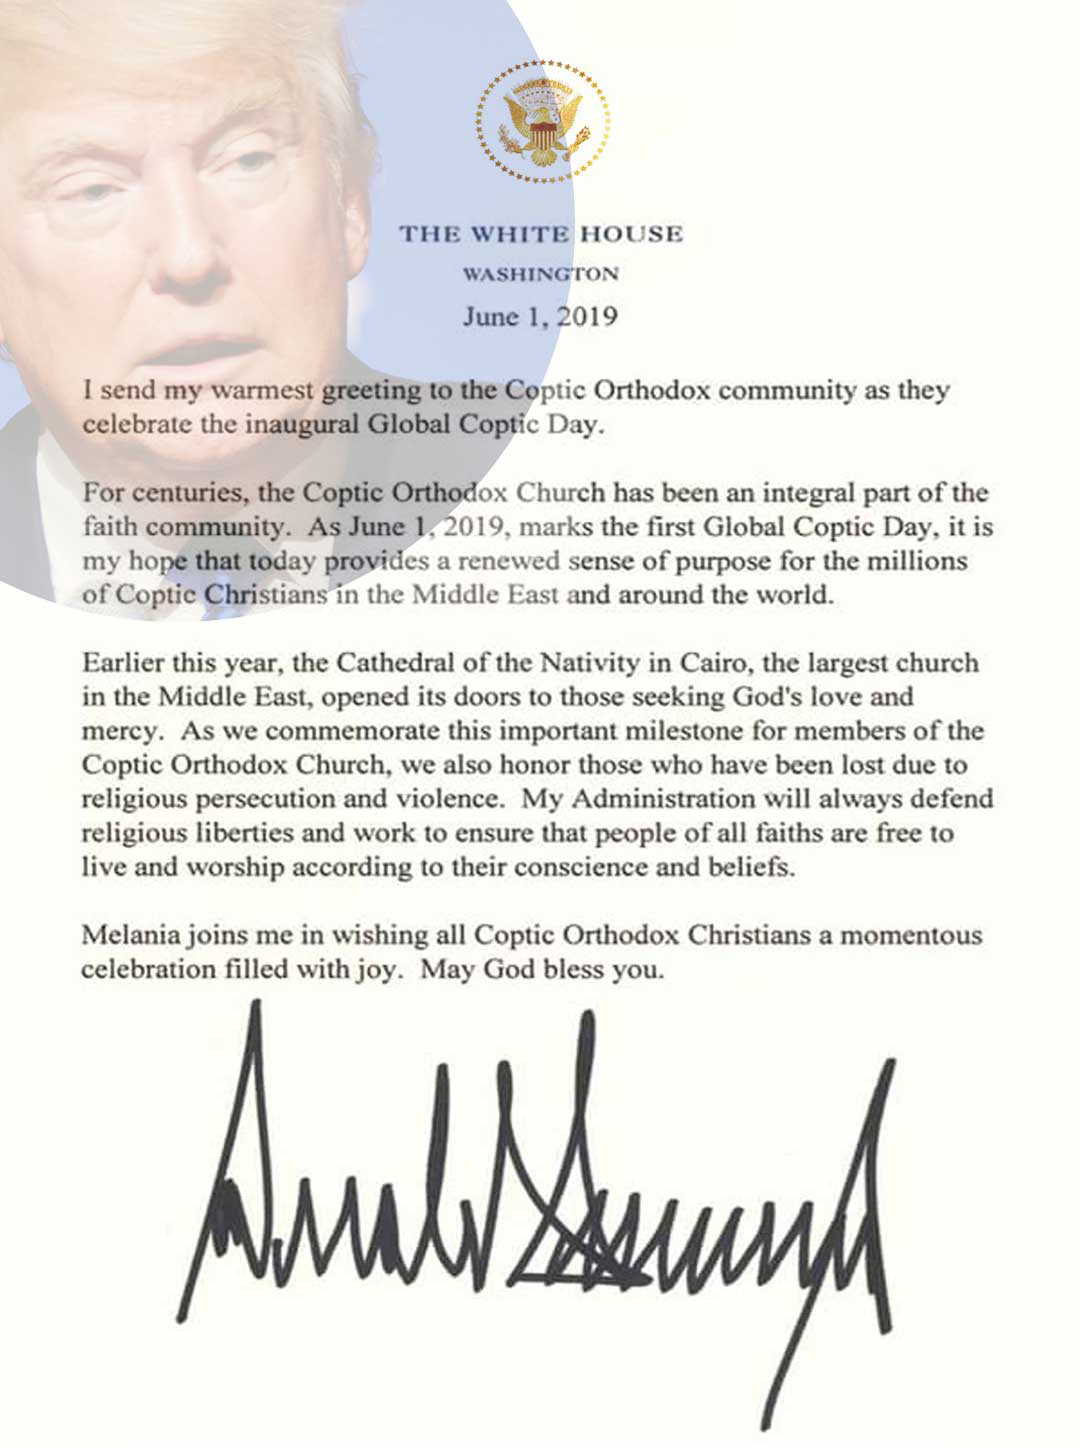 THE WHITE HOUSE
WASHINGTON
June 1, 2019
I send my warmest greeting to the Coptic Orthodox community as they
celebrate the inaugural Global Coptic Day.
For centuries, the Coptic Orthodox Church has been an integral part of the
faith community. As June 1, 2019, marks the first Global Coptic Day, it is
my hope that today provides a renewed sense of purpose for the millions
of Coptic Christians in the Middle East and around the world.
Earlier this year, the Cathedral of the Nativity in Cairo, the largest church
in the Middle East, opened its doors to those seeking God's love and
mercy. As we commemorate this important milestone for members of the
Coptic Orthodox Church, we also honor those who have been lost due to
religious persecution and violence. My Administration will always defend
religious liberties and work to ensure that people of all faiths are free to
live and worship according to their conscience and beliefs.
Melania joins me in wishing all Coptic Orthodox Christians a momentous
celebration filled with joy. May God bless you.